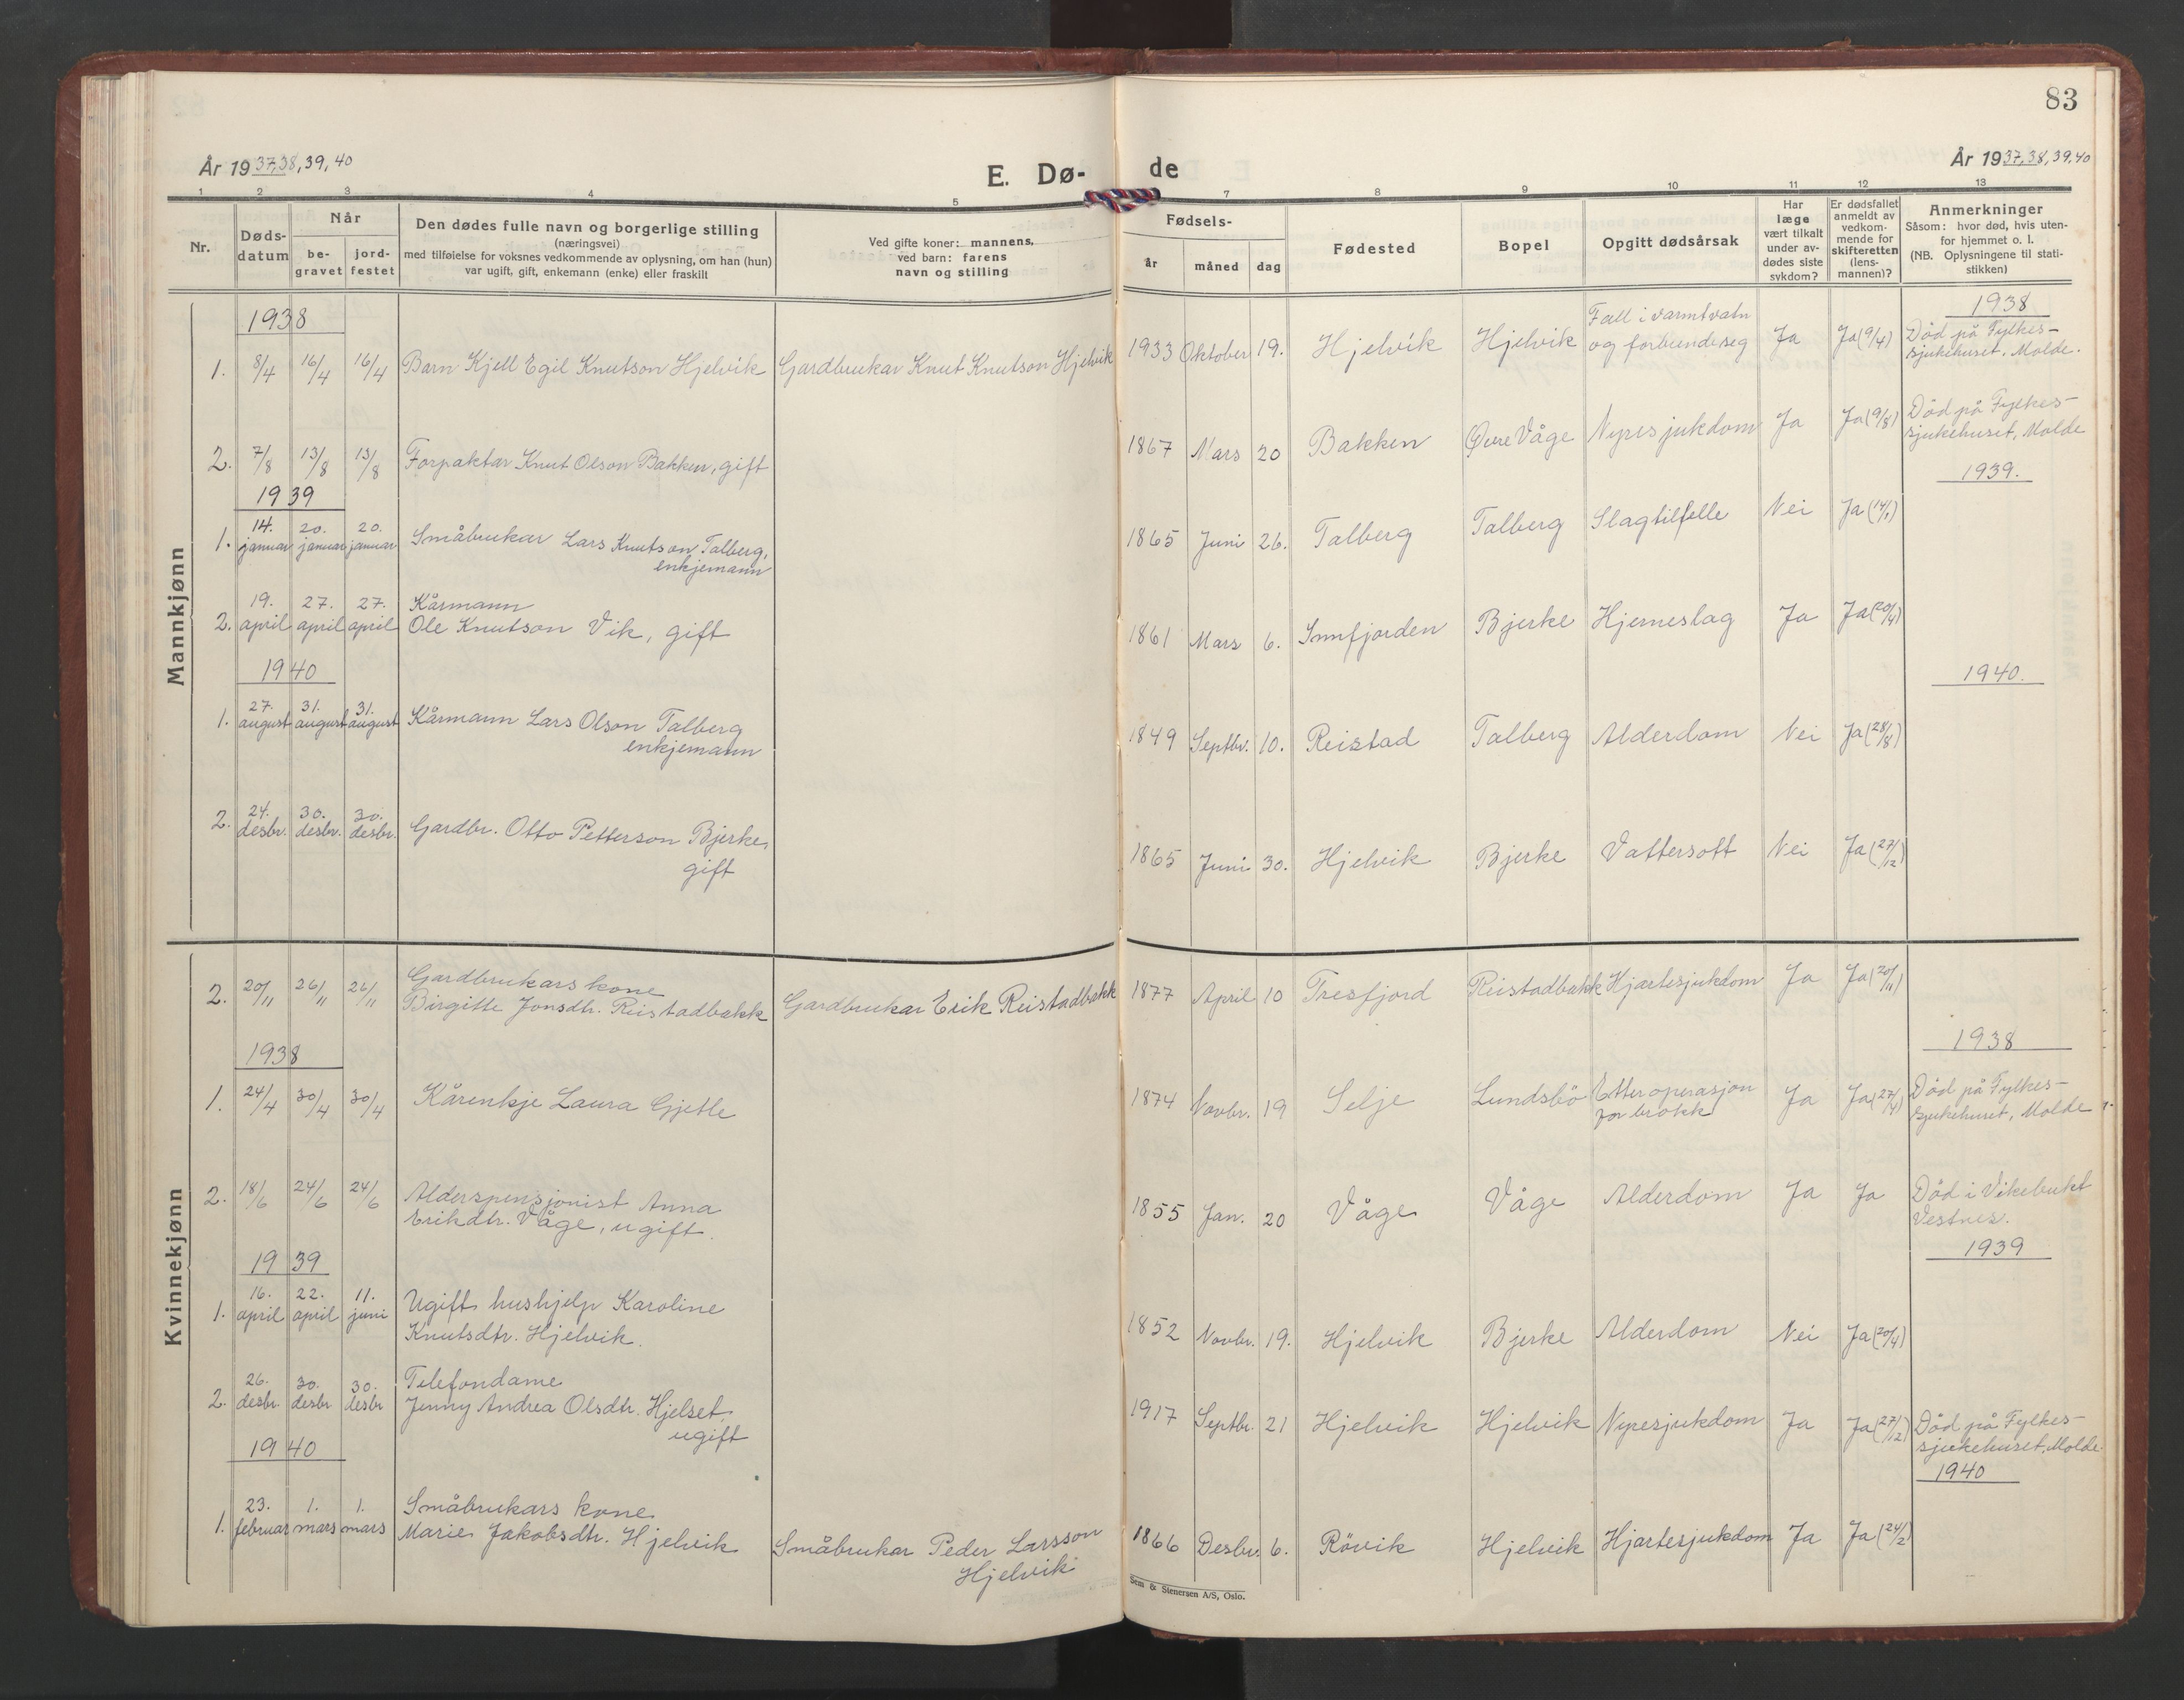 83
År 1937,38,39,40
E. Dø-
de
År 1937,38,39,40
1 2 3 4 5 7 8 9 10 11 12 13
Nr.
Døds-
datum
Når
be-
gravet
jord-
festet
Den dødes fulle navn og borgerlige stilling
(næringsvei)
med tilføielse for voksnes vedkommende av oplysning, om han (hun)
var ugift, gift, enkemann (enke) eller fraskilt
Ved gifte koner: mannens,
ved barn: farens
navn og stilling
Fødsels-
år måned dag
Fødested
Bopel
Opgitt dødsårsak
Har
læge
vært tilkalt
under av-
dødes siste
sykdom?
Er dødsfallet
anmeldt av
vedkom-
mende for
skifteretten
(lens-
mannen)?
Anmerkninger
Såsom: hvor død, hvis uten-
for hjemmet o. l.
(NB. Oplysningene til stati-
stikken)
Mannkjønn
1938
1938
1. 8/4 16/4 16/4 Barn Kjell Egil Knutson Hjelvik Gardbrukar Knut Knutson Hjelvik 1933 Oktober 19. Hjelvik Hjelvik Fall i varmtvatn
og forbrende seg Ja Ja (9/4) Död på Fylkes-
sjukehuset, Molde.
2. 7/8 13/8 13/8 Forpaktar Knut Olson Bakken, gift 1867 Mars 20 Bakken Øvre Våge Nyresjukdom Ja Ja (9/8) Död på Fylkes-
sjukehuset, Molde
1939
1939.
1. 14. januar 20. januar 20. januar Småbrukar Lars Knutson Talberg,
enkjemann 1865 Juni 26. Talberg Talberg Slagtilfelle Nei Ja (14/1)
2. 19. april 27. april 27. april Kårmann
Ole Knutson Vik, gift 1861 Mars 6. Innfjorden Bjerke Hjerneslag Ja Ja (20/4)
1940
1940.
1. 27. august 31. august 31. august Kårmann Lars Olson Talberg
enkjemann 1849 Septbr. 10. Reistad Talberg Alderdom Nei Ja (28/8)
2. 24. desbr. 30. desbr. 30. desbr. Gardbr. Otto Petterson Bjerke,
gift 1865 Juni 30. Hjelvik Bjerke Vattersott Nei Ja (27/12)
Kvinnekjønn
2. 20/11 26/11 26/11 Gardbrukars kone
Birgitte Jonsdtr. Reistadbakk Gardbrukar Erik Reistadbakk 1877 April 10 Tresfjord Reistadbakk Hjartesjukdom Ja Ja (20/11)
1938
1938
1. 24/4 30/4 30/4 Kårenkje Laura Gjetle 1874 Novbr. 19 Selje Lundsbö Etter operasjon
for brokk Ja Ja (27/4) Död på Fylkes-
sjukehuset, Molde
2. 18/6 24/6 24/6 Alderspensjonist Anna
Erikdtr. Våge, ugift. 1855 Jan. 20 Våge Våge Alderdom Ja Ja Död i Vikebukt
Vestnes.
1939
1939
1. 16. april 22. april 11. juni Ugift hushjelp Karoline
Knutsdtr. Hjelvik. 1852 Novbr. 19. Hjelvik Bjerke Alderdom Nei Ja (20/4)
2. 26. desbr. 30. desbr 30. desbr Telefondame
Jenny Andrea Olsdtr. Hjelset,
ugift 1917 Septbr. 21 Hjelvik Hjelvik Nyresjukdom Ja Ja (27/12) Död på Fylkes-
sjukehuset, Molde.
1940
1940
1. 23. februar 1. mars 1. mars Småbrukars kone
Marie Jakobsdtr. Hjelvik Småbrukar Peder Larsson
Hjelvik 1866 Desbr. 6. Rövik Hjelvik Hjartesjukdom Ja Ja (24/2)
Sem & Stenersen A/S, Oslo.